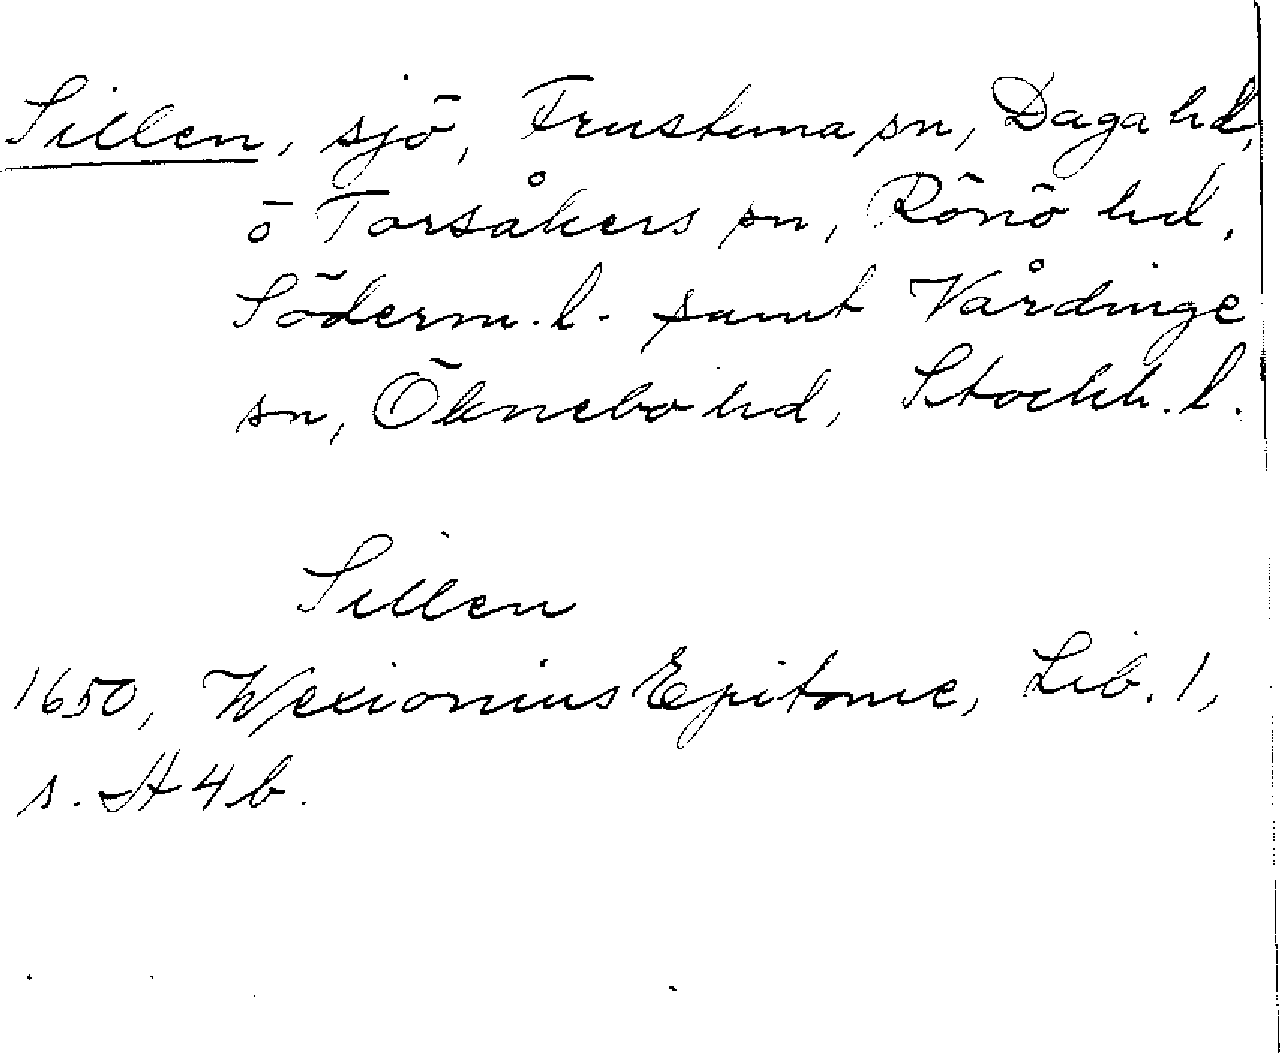 Sillen, sjö, Frustuna sn, Daga hd,
ö Torsåkers sn, Rönö hd,
Söderm. l. samt Vårdinge
sn, Öknebo hd, Stockh. l.
Sillen
1650, Wexionius Epitome, Lib. 1,
s. H4b.